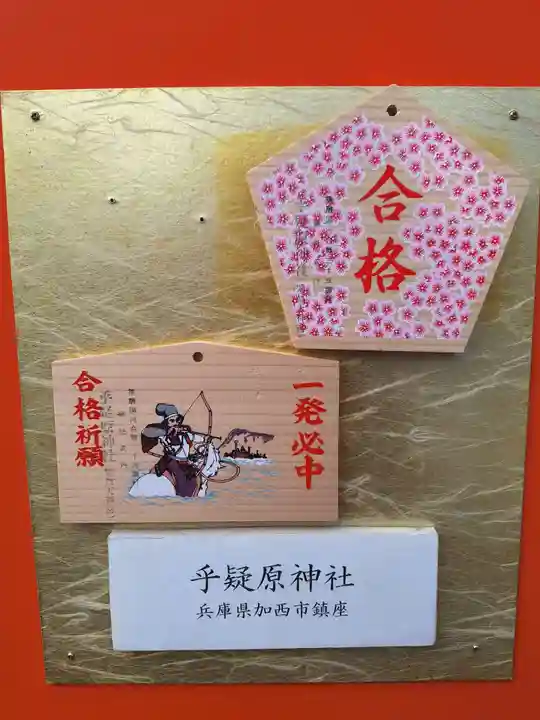 合格
一発必中
合格祈願
乎疑原神社
乎疑原神社
兵庫県加西市鎮座